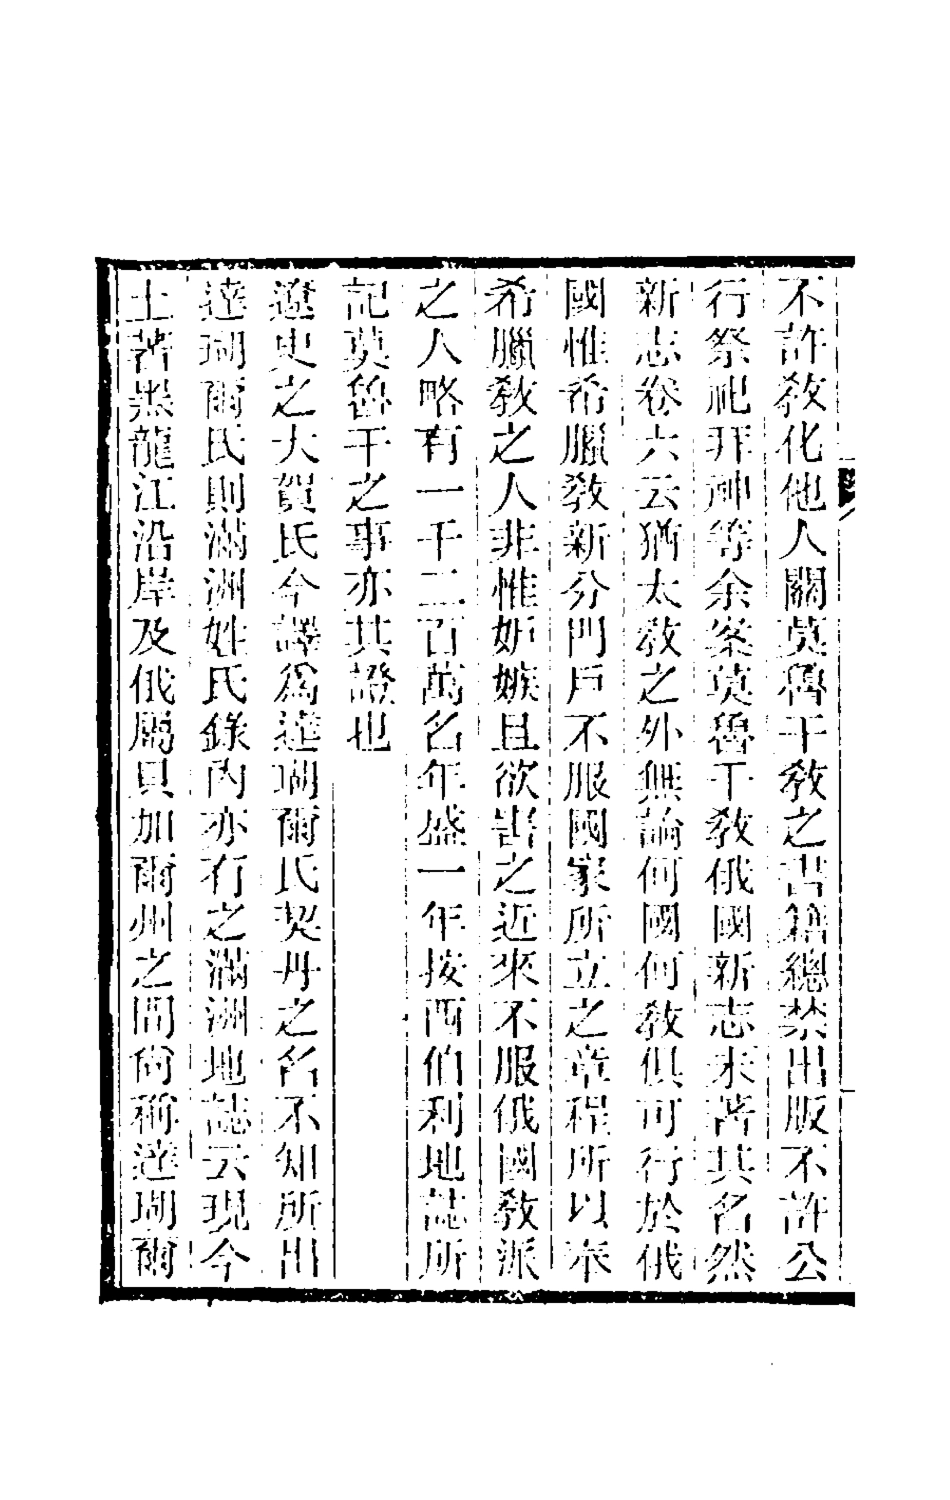 不許敎化他人關莫魯干敎之書籍總禁出版不許公
行祭祀拜神等余案莫魯干敎俄國新志未著其名然
新志卷六云猶太敎之外無論何國何敎俱可行於俄
國惟希臘敎新分門戶不服國家所立之章程所以奉
希臘敎之人非惟妒嫉且欲害之近來不服俄國敎派
之人略有一千二百萬名年盛一年按西伯利地誌所
記莫魯干之事亦其證也
遼史之大賀氏今譯爲達瑚爾氏契丹之名不知所出
達瑚爾氏則滿洲姓氏錄內亦有之滿洲地誌云現今
土著黑龍江沿岸及俄屬貝加爾州之間尙稱達瑚爾